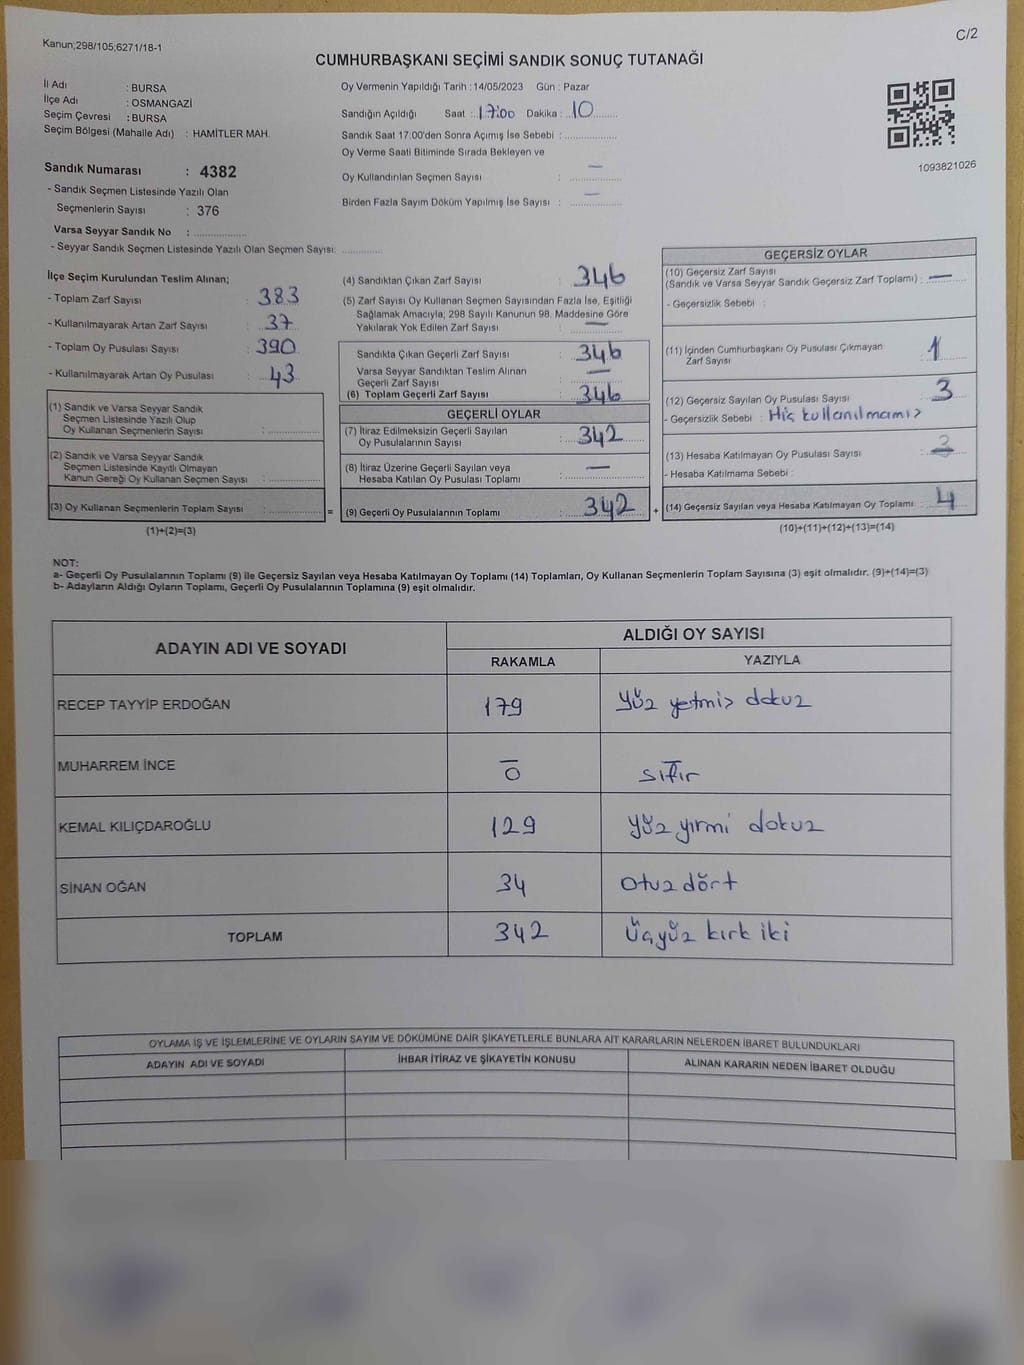 Kanun;298/105;6271/18-1
C/2
CUMHURBAŞKANI SEÇİMİ SANDIK SONUÇ TUTANAĞI
İl Adı : BURSA
İlçe Adı : OSMANGAZİ
Seçim Çevresi : BURSA
Seçim Bölgesi (Mahalle Adı) : HAMİTLER MAH.
Oy Vermenin Yapıldığı Tarih : 14/05/2023 Gün : Pazar
Sandığın Açıldığı Saat : 17:00 Dakika : 10
Sandık Saat 17:00'den Sonra Açımış İse Sebebi :
Oy Verme Saati Bitiminde Sırada Bekleyen ve
Oy Kullandırılan Seçmen Sayısı : —
Birden Fazla Sayım Döküm Yapılmış İse Sayısı : —
1093821026
Sandık Numarası : 4382
- Sandık Seçmen Listesinde Yazılı Olan
Seçmenlerin Sayısı : 376
Varsa Seyyar Sandık No :
- Seyyar Sandık Seçmen Listesinde Yazılı Olan Seçmen Sayısı:
İlçe Seçim Kurulundan Teslim Alınan;
- Toplam Zarf Sayısı : 383
- Kullanılmayarak Artan Zarf Sayısı : 37
- Toplam Oy Pusulası Sayısı : 390
- Kullanılmayarak Artan Oy Pusulası : 43
(1) Sandık ve Varsa Seyyar Sandık
Seçmen Listesinde Yazılı Olup
Oy Kullanan Seçmenlerin Sayısı :
(2) Sandık ve Varsa Seyyar Sandık
Seçmen Listesinde Kayıtlı Olmayan
Kanun Gereği Oy Kullanan Seçmen Sayısı :
(3) Oy Kullanan Seçmenlerin Toplam Sayısı :
=
(1)+(2)=(3)
(4) Sandıktan Çıkan Zarf Sayısı : 346
(5) Zarf Sayısı Oy Kullanan Seçmen Sayısından Fazla İse, Eşitliği
Sağlamak Amacıyla; 298 Sayılı Kanunun 98. Maddesine Göre
Yakılarak Yok Edilen Zarf Sayısı : —
Sandıkta Çıkan Geçerli Zarf Sayısı : 346
Varsa Seyyar Sandıktan Teslim Alınan
Geçerli Zarf Sayısı : —
(6) Toplam Geçerli Zarf Sayısı : 346
GEÇERLİ OYLAR
(7) İtiraz Edilmeksizin Geçerli Sayılan
Oy Pusulalarının Sayısı : 342
(8) İtiraz Üzerine Geçerli Sayılan veya
Hesaba Katılan Oy Pusulası Toplamı : —
(9) Geçerli Oy Pusulalarının Toplamı : 342
+
GEÇERSİZ OYLAR
(10) Geçersiz Zarf Sayısı
(Sandık ve Varsa Seyyar Sandık Geçersiz Zarf Toplamı) : —
- Geçersizlik Sebebi :
(11) İçinden Cumhurbaşkanı Oy Pusulası Çıkmayan
Zarf Sayısı : 1
(12) Geçersiz Sayılan Oy Pusulası Sayısı : 3
- Geçersizlik Sebebi : Hiç kullanılmamış
(13) Hesaba Katılmayan Oy Pusulası Sayısı :
- Hesaba Katılmama Sebebi :
(14) Geçersiz Sayılan veya Hesaba Katılmayan Oy Toplamı : 4
(10)+(11)+(12)+(13)=(14)
NOT:
a- Geçerli Oy Pusulalarının Toplamı (9) ile Geçersiz Sayılan veya Hesaba Katılmayan Oy Toplamı (14) Toplamları, Oy Kullanan Seçmenlerin Toplam Sayısına (3) eşit olmalıdır. (9)+(14)=(3)
b- Adayların Aldığı Oyların Toplamı, Geçerli Oy Pusulalarının Toplamına (9) eşit olmalıdır.
ADAYIN ADI VE SOYADI ALDIĞI OY SAYISI
RAKAMLA YAZIYLA
RECEP TAYYİP ERDOĞAN 179 yüz yetmiş dokuz
MUHARREM İNCE 0 sıfır
KEMAL KILIÇDAROĞLU 129 yüz yirmi dokuz
SİNAN OĞAN 34 otuz dört
TOPLAM 342 üçyüz kırk iki
OYLAMA İŞ VE İŞLEMLERİNE VE OYLARIN SAYIM VE DÖKÜMÜNE DAİR ŞİKAYETLERLE BUNLARA AİT KARARLARIN NELERDEN İBARET BULUNDUKLARI
ADAYIN ADI VE SOYADI İHBAR İTİRAZ VE ŞİKAYETİN KONUSU ALINAN KARARIN NEDEN İBARET OLDUĞU